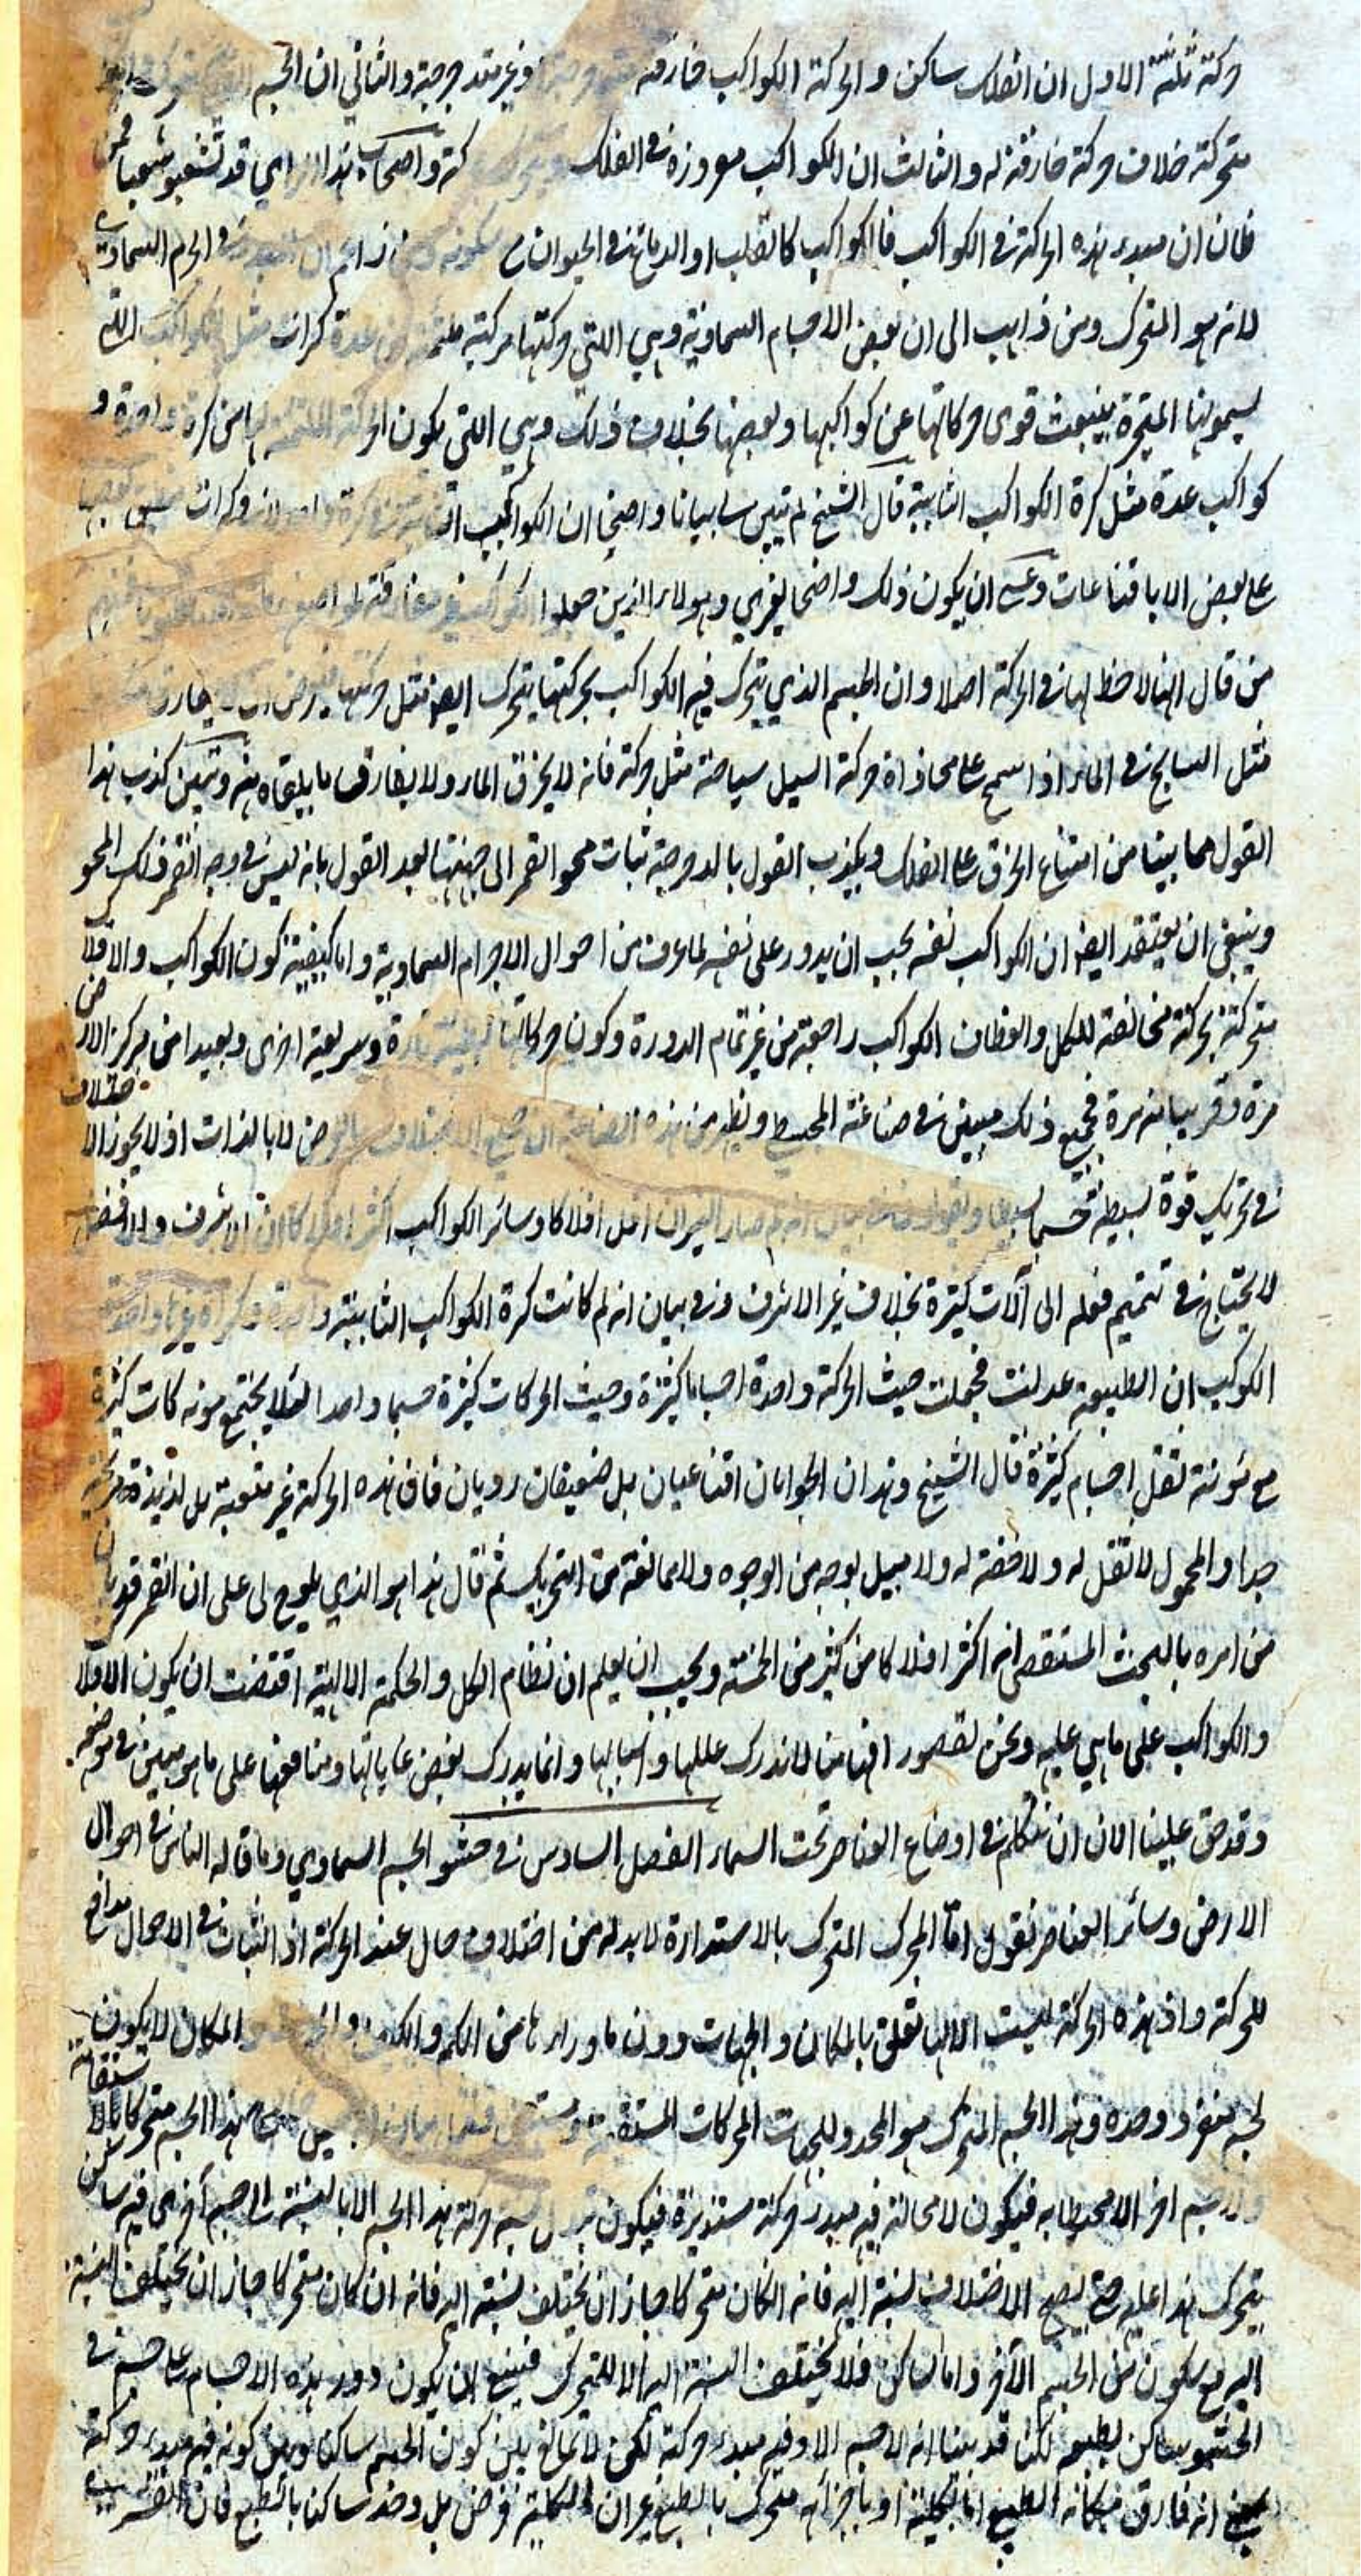 حركته ثلثة الاول ان الفلك ساكن والحركة الكواكب خارقة متدحرجة او غير متدحرجة والثاني ان الجسم
متحركة خلاف حركته خارقة له والثالث ان الكواكب مغروزة في الفلك واصحاب هذا الراي قد تشعبوا شعبا فمن
ظان ان مبدء هذه الحركة في الكواكب فالكواكب كالقلب او الدماغ في الحيوان في الجرم السماوي
لانه هو المتحرك ومن ذاهب الى ان بعض الاجسام السماوية وهي اللتي حركتها مركبة ملتئمة من عدة كرات مثل الكواكب اللتي
يسمونها المتحيرة ينبعث قوى حركاتها عن كواكبها وبعضها بخلاف ذلك وهي اللتي يكون الحركة الملتئمة لها من كرة واحدة و
كواكب عدة مثل كرة الكواكب الثابتة قال الشيخ لم يتبين لنا بيانا واضحا ان الكواكب الثابتة في كرة واحدة او كرات منطبق بعضها
على بعض الا باقناعات وعسى ان يكون ذلك واضحا لغيري وهؤلاء الذين جعلوا الكواكب غير مفارقة لمواضعها فمنهم
من قال انها لا حظ لها في الحركة اصلا وان الجسم الذي يتحرك فيه الكواكب بحركتها يتحرك ايضا مثل حركتها
مثل السابح في الماء اذا سبح على محاذاة حركة السيل سباحة مثل حركته فانه لا يخرق الماء ولا يفارق ما يلقاه منه وتبين كذب هذا
القول مما بينا من امتناع الخرق على الفلك ويكذب القول بالدحرجة ثبات محو القمر الى جهتها بعد القول بانه ليس في وجه القمر ذلك المحو
وينبغي ان يعتقد ايضا ان الكواكب نفسه يجب ان يدور على نفسه لما عرف من احوال الاجرام السماوية واما كيفية كون الكواكب والافلاك
متحركة بحركة مخالفة للكل وانعطاف الكواكب راجعة من غير تمام الدورة وكون حركاتها بطيئة تارة وسريعة اخرى وبعيدا من مركز الارض
مرة وقريبا منه مرة فجميع ذلك مبين في صناعة المجسطي ويظهر من هذه الصناعة ان جميع الاختلاف بالعرض لا بالذات اذ لا يجوز الاختلاف
في تحريك قوة بسيطة جسما بسيطا ويقول في بيان انه لم صار النيران اقل افلاكا وسائر الكواكب اكثر افلاكا ان الاشرف والافضل
لا يحتاج في تتميم فعله الى آلات كثيرة بخلاف غير الاشرف وفي بيان انه لم كانت كرة الكواكب الثابتة واحدة وكراة غيرها واحدة
الكوكب ان الطبيعة عدلت فجعلت حيث الحركة واحدة اجساما كثيرة وحيث الحركات كثيرة جسما واحدا لئلا يجتمع مؤنة حركات كثيرة
مع مؤنة نقل اجسام كثيرة قال الشيخ وهذان الجوابان اقناعيان بل ضعيفان رديان فان هذه الحركة غير متعبة بل لذيذة مريحة
جدا والمحمول لا ثقل له ولا خفة له ولا ميل بوجه من الوجوه ولا ممانعة من التحريك ثم قال هذا هو الذي يلوح لى على ان القمر قد بان
من امره بالبحث المستقصى انه اكثر افلاكا من كثير من الخمسة ويجب ان يعلم ان نظام الكل والحكمة الالهية اقتضت ان يكون الافلاك
والكواكب على ما هي عليه ونحن لقصور افهامنا لا ندرك عللها واسبابها وانما يدرك بعض غاياتها ومنافعها على ما هو مبين في موضعه
وقد حق علينا الان ان نتكلم في اوضاع العناصر تحت السماء الفصل السادس في حشو الجسم السماوي وما قاله الناس في احوال
الارض وسائر العناصر نقول اما المحرك المتحرك بالاستدارة لا بد له من اختلاف حال عند الحركة اذ الثبات في الاحوال مدافع
للحركة واذ هذه الحركة ليست الا لها تعلق بالمكان والجهات دون ما وراءها من الكم والكيف والمكان لا يكون
لجسم مفرد وحده وهذا الجسم المتحرك هو المحدد للجهات الحركات المستقيمة هذا الجسم متحركا بالاستقامة
ولا جسم اخر الا محيطا به فيكون لا محالة فيه مبدء حركة مستديرة فيكون تبدل نسبة حركة هذا الجسم الا بالنسبة الى جسم آخر في فيه ساكن
يتحرك هذا عليه حتى يصح الاختلاف لنسبة اليه فانه ان كان متحركا جاز ان يختلف نسبته اليه فانه ان كان متحركا جاز ان يختلف النسبة
اليه مع سكون من الجسم الآخر واما الساكن فلا يختلف النسبة اليه الا للمتحرك فينبغي ان يكون دور هذه الاجسام على جسم في
الحشو ساكن بطبعه لكنا قد بينا انه لا جسم الا وفيه مبدء حركة لكن لا تمانع بين كون الجسم ساكنا وبين كونه فيه مبدء حركة
انه فارق مكانه الطبيعي اما بكليته او باجزائه متحرك بالطبع غير ان الكلية فرض بل وجد ساكنا بالطبع فان